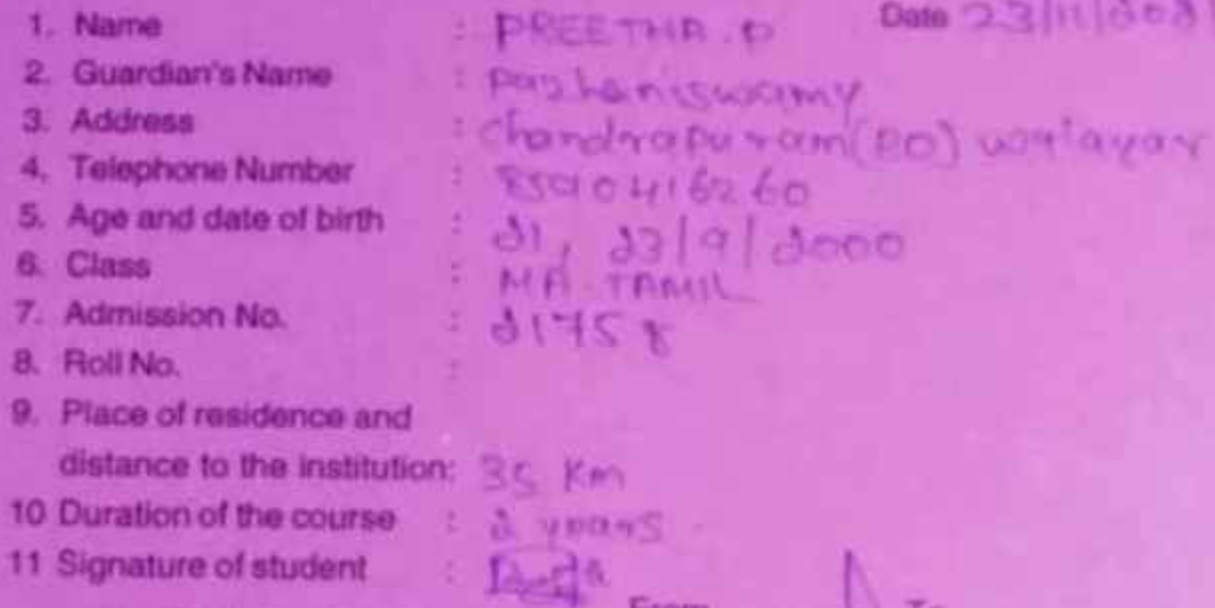 1. Name : PREETHA.P Date 23/11/2021
2. Guardian's Name : Pazhaniswamy
3. Address : Chandrapuram(PO) walayar
4. Telephone Number : 8590416260
5. Age and date of birth : 21, 23/9/2000
6. Class : MA TAMIL
7. Admission No. : 21758
8. Roll No. :
9. Place of residence and
distance to the institution: 35 Km
10 Duration of the course : 2 years
11 Signature of student :
From To